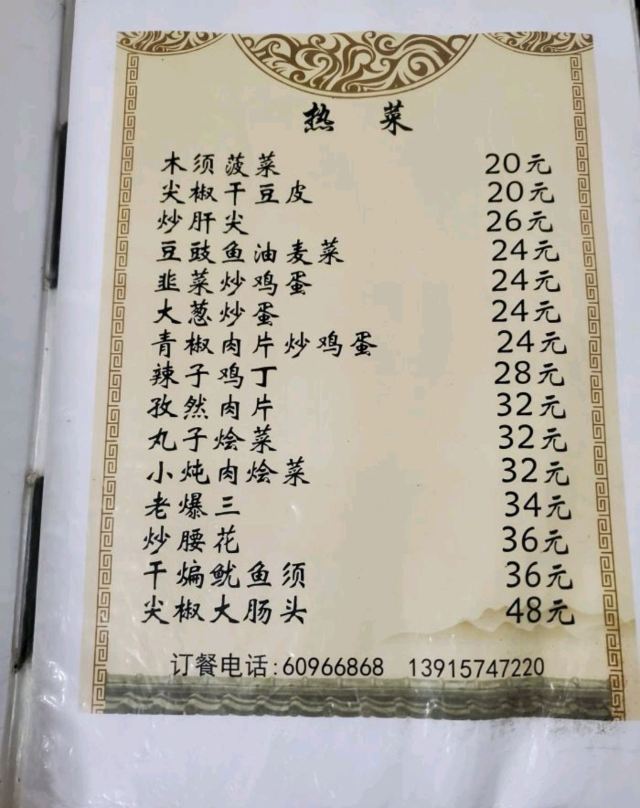 热 菜
木须菠菜 20元
尖椒干豆皮 20元
炒肝尖 26元
豆豉鱼油麦菜 24元
韭菜炒鸡蛋 24元
大葱炒蛋 24元
青椒肉片炒鸡蛋 24元
辣子鸡丁 28元
孜然肉片 32元
丸子烩菜 32元
小炖肉烩菜 32元
老爆三 34元
炒腰花 36元
干煸鱿鱼须 36元
尖椒大肠头 48元
订餐电话:60966868 13915747220